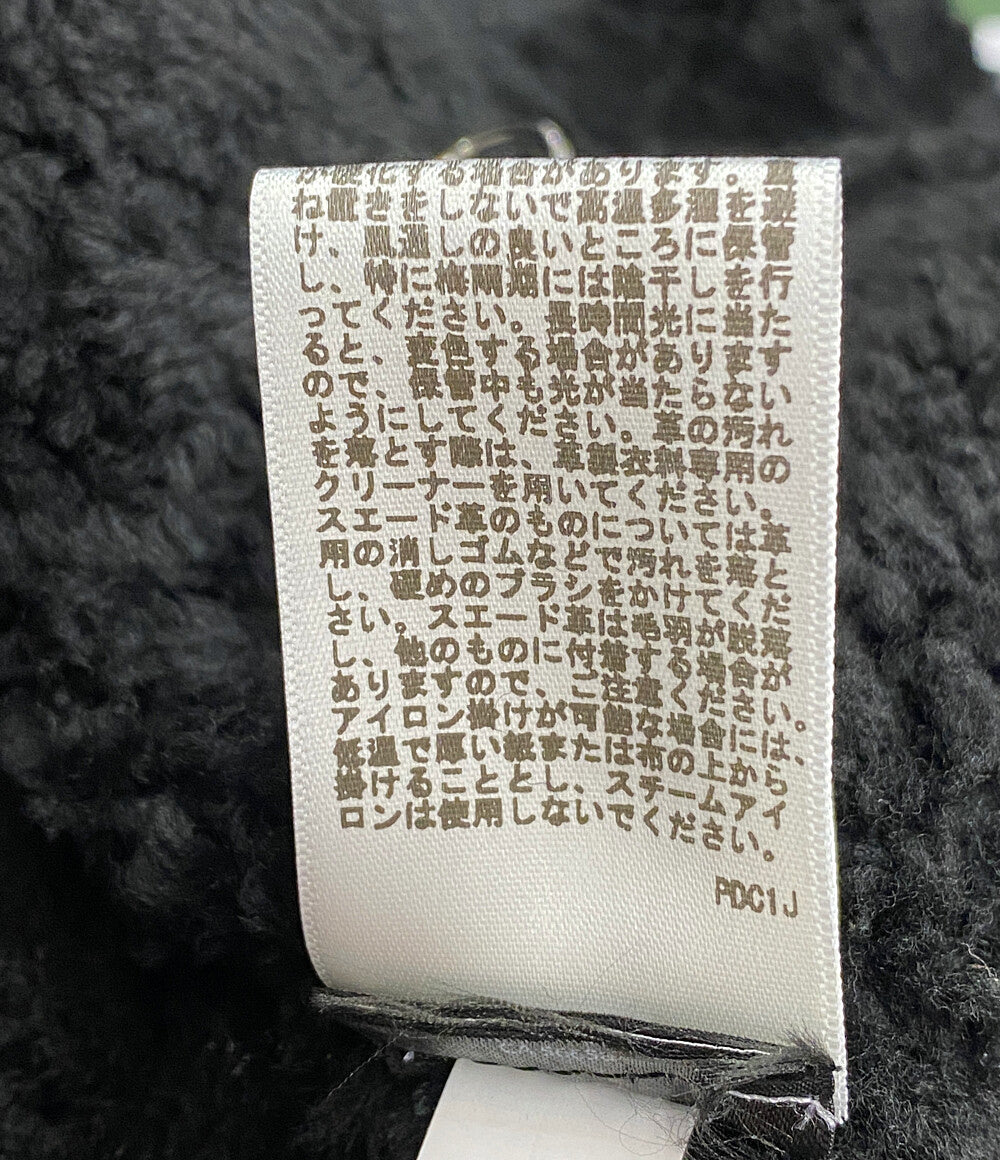 硬化する場合があります。重
ね置きをしないで高温多湿を避
け、風通しの良いところに保管
し、特に梅雨期には陰干しを行
ってください。長時間光にあた
ると、変色する場合がありますの
で、保管中も光が当たらない
ようにしてください。革の汚れ
を落とす際は、革製衣料の専用
クリーナーを用いてください。
スエード革のものについては、革
用の消しゴムなどで汚れを落と
し、硬めのブラシをかけてくだ
さい。スエード革は毛羽が脱落
し、他のものに付着する場合が
ありますので、ご注意ください。
アイロン掛けが可能な場合には、
低温で厚い紙または布の上から
掛けることとし、スチームアイ
ロンは使用しないでください。
PDC1J